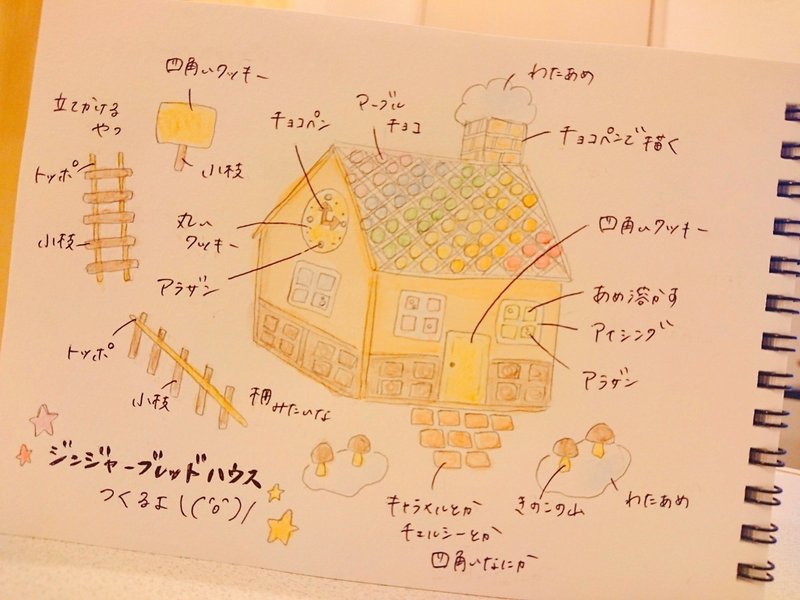 わたあめ
四角いクッキー
マーブル
チョコ
立てかける
やつ
チョコペン
チョコペンで描く
トッポ
小枝
丸い
クッキー
四角いクッキー
小枝
アラザン
あめ溶かす
アイシング
トッポ
アラザン
小枝
柵みたいな
ジンジャーブレッドハウス
つくるよ\(^o^)/
キャラメルとか
チェルシーとか
四角いなにか
きのこの山
わたあめ